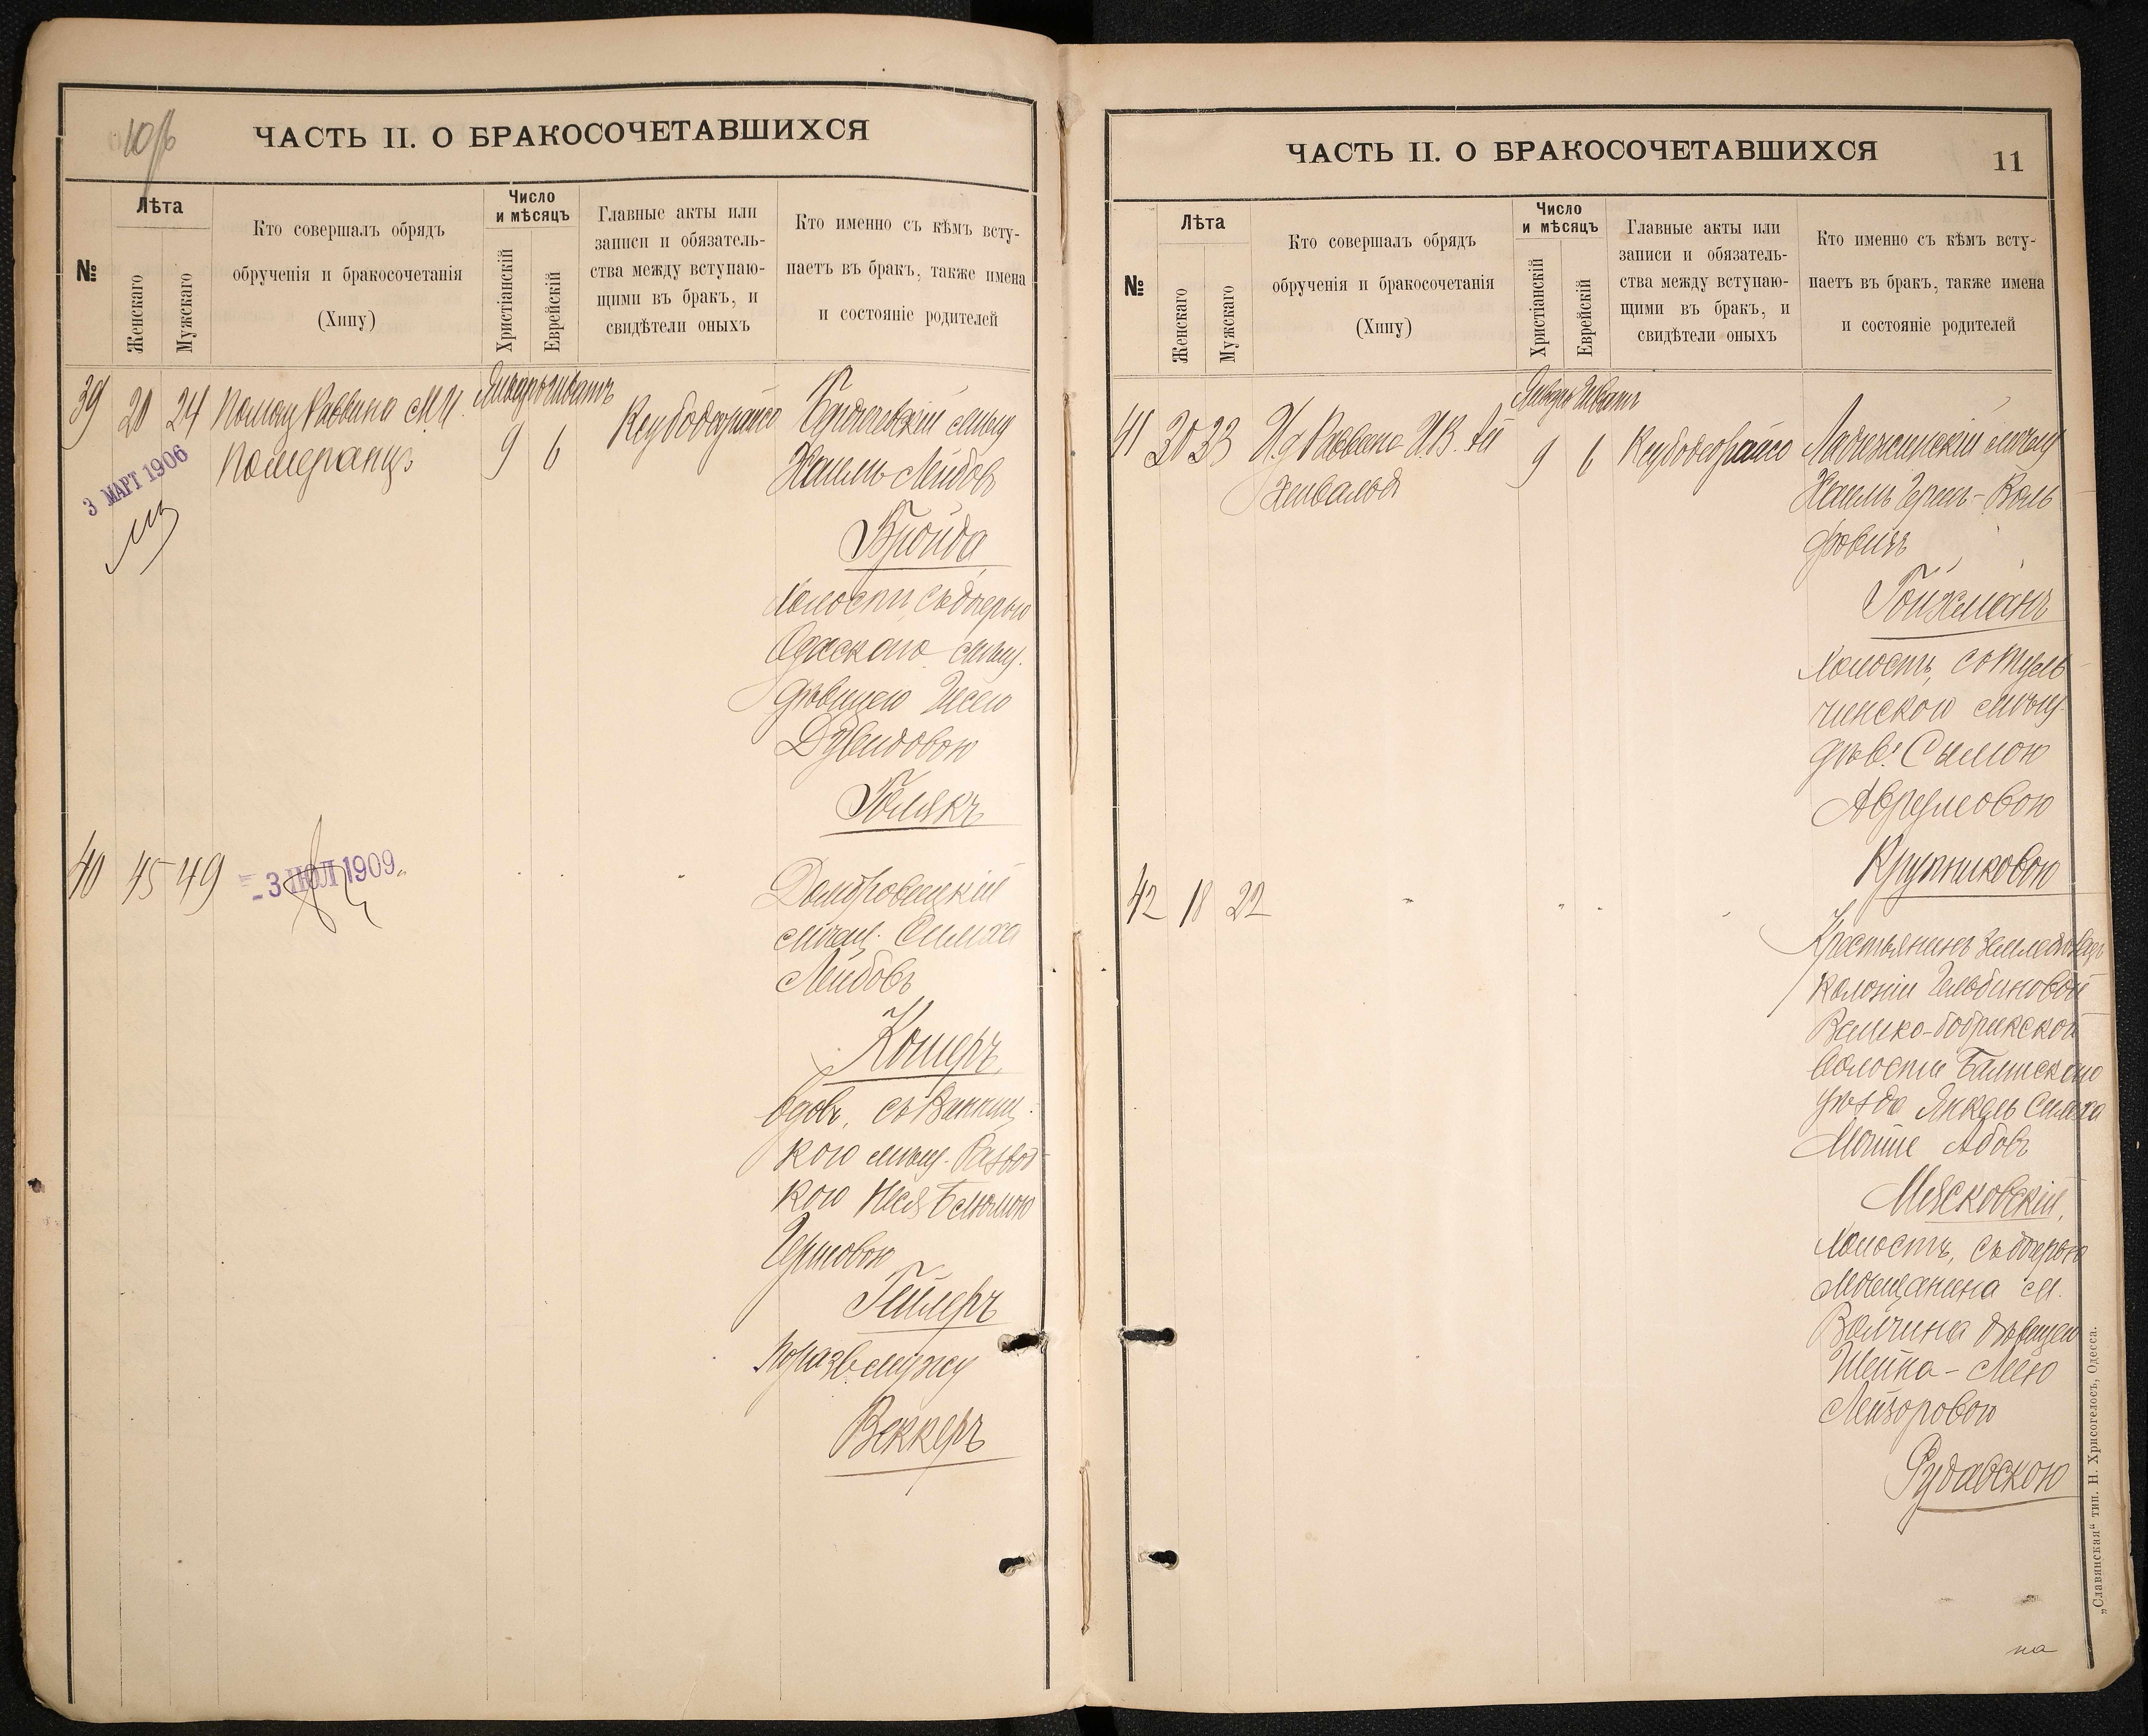 10/б
ЧАСТЬ II. О БРАКОСОЧЕТАВШИХСЯ
№
Лѣта
Женскаго
Мужскаго
Кто совершалъ обрядъ
обрученія и бракосочетанія
(Хипу)
Число
и мѣсяцъ
Христіанскій
Еврейскій
Главные акты или
записи и обязатель-
ства между вступаю-
щими въ бракъ, и
свидѣтели оныхъ
Кто именно съ кѣмъ всту-
паетъ въ бракъ, также имена
и состояніе родителей
39 20 24 Помощ Раввина М И.
Померанцъ
Январ Шватъ
9 6
3 МАРТ 1906
Бердичевскій мѣщ
Хаимъ Лейбовъ
Бройда
холостъ, съ дочерью
Одесскаго мѣщ.
дѣвицею
Дувидовою
Полякъ
40 45 49 " " " "
- 3 ІЮЛ 1909
Домбровицкій
мѣщ. Симха
Лейбовъ
Кошеръ,
вдов., съ Винниц-
кою мѣщ. Развод-
кою
Гершовою
Гейлеръ
по разв мужу
Веккеръ
ЧАСТЬ II. О БРАКОСОЧЕТАВШИХСЯ
11
№
Лѣта
Женскаго
Мужскаго
Кто совершалъ обрядъ
обрученія и бракосочетанія
(Хипу)
Число
и мѣсяцъ
Христіанскій
Еврейскій
Главные акты или
записи и обязатель-
ства между вступаю-
щими въ бракъ, и
свидѣтели оныхъ
Кто именно съ кѣмъ всту-
паетъ въ бракъ, также имена
и состояніе родителей
41 30 33 И.д Раввина И.В. Ай
хенвальдъ
Январ Шват
9 6
Ладыжинскій мѣщ
Хаимъ Герш-Воль
фовичъ
Гойхманъ
холостъ, съ Туль
чинскою мѣщ.
дѣв. Сымою
Аврумовою
Крупниковою
42 18 22 " " " "
Крестьянинъ
колоніи
волости Балтскаго
уѣзда Янкель Симха
Мойше Абовъ
Мясковскій,
холостъ, съ дочерью
мѣщанина м.
Волчина дѣвицею
Шейна-Леею
Лейзоровою
Рудавскою
„Славянская“ тип. Н. Хрисогелосъ, Одесса.
на